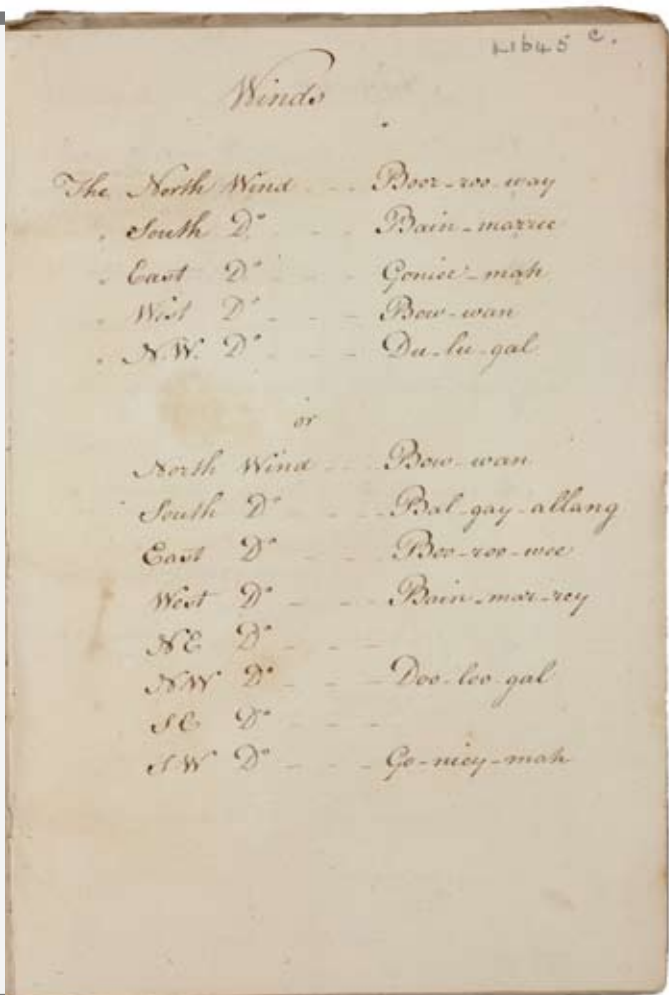 41645 c.
Winds
The North Wind - - Boor-roo-way
" South Do. - - Bain-marree
" East Do - - Goniee-mah
" West Do - - - Bow-wan
" N.W. Do - - - Du-lu-gal
or
North Wind - - Bow-wan
South Do - - - Bal-gay-allang
East Do - - - Boo-roo-wee
West Do - - - Bain-mar-rey
NE Do - - -
NW Do - - - Doo-loo-gal
SE Do - - -
SW Do - - - Go-niey-mah